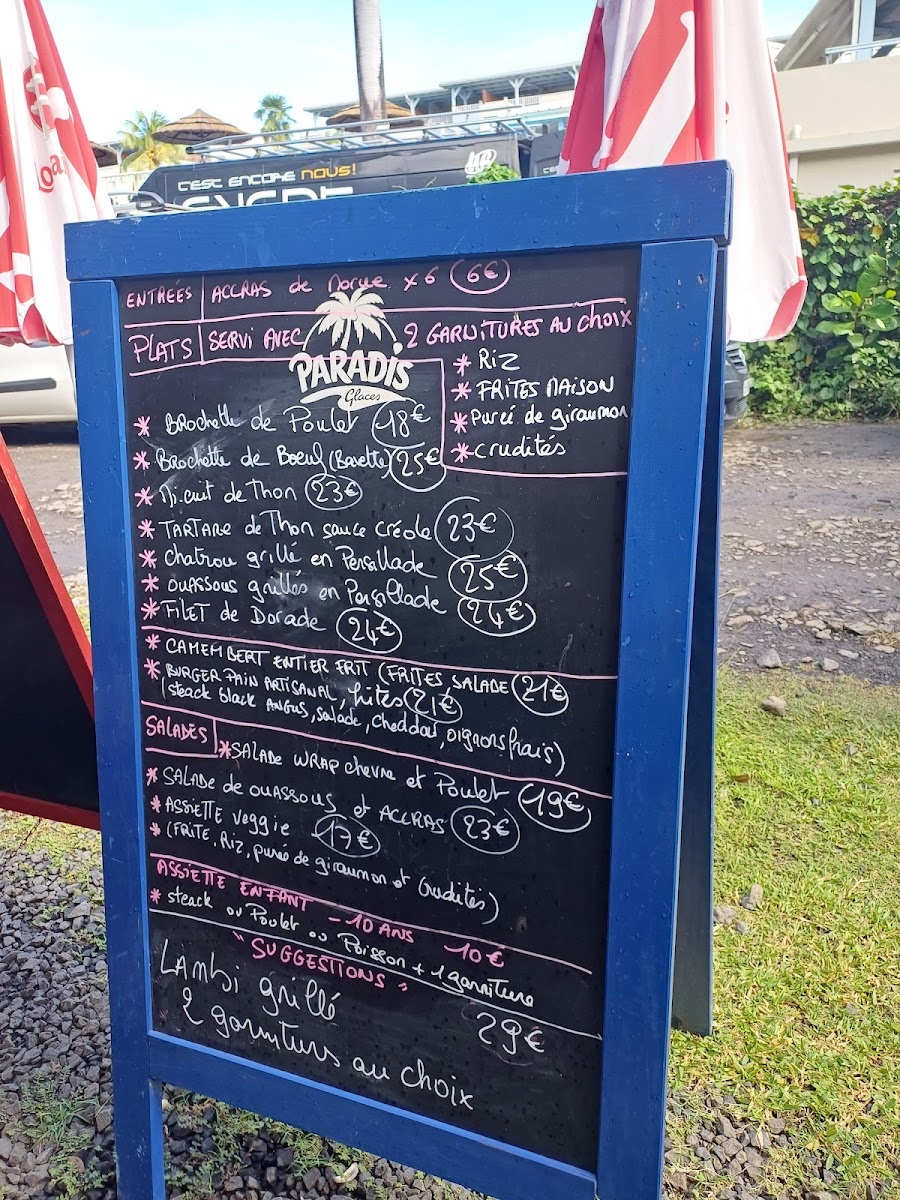 C'EST ENCORE NOUS!
ENTREES ACCRAS de Morue x 6 6€
PLATS SERVI AVEC 2 GARNITURES AU CHOIX
PARADIS
Glaces
* Riz
* FRITES MAISON
* Pureé de giraumon
* crudités
* Brochette de Poulet 18€
* Brochette de Boeuf (Bavette) 25€
* Mi.cuit de Thon 23€
* TARTARE de Thon sauce créole 23€
* Chatrou grillé en Persillade 25€
* OUASSOUS grillés en Persillade 24€
* FILET de Dorade 24€
* CAMEMBERT ENTIER FRIT (FRITES SALADE 21€
* BURGER PAIN ARTISANAL, frites 21€
(steack black ANGUS, salade, cheddar, oignons frais)
SALADES
* SALADE WRAP chevre et Poulet 19€
* SALADE de OUASSOUS et ACCRAS 23€
* ASSIETTE veggie 17€
* (FRITE, Riz, purée de giraumon et Crudités)
ASSIETTE ENFANT - 10 ANS 10€
* steack ou Poulet ou Poisson + 1 garniture
"SUGGESTIONS"
LAMBI grillé 29€
2 garniturs au choix